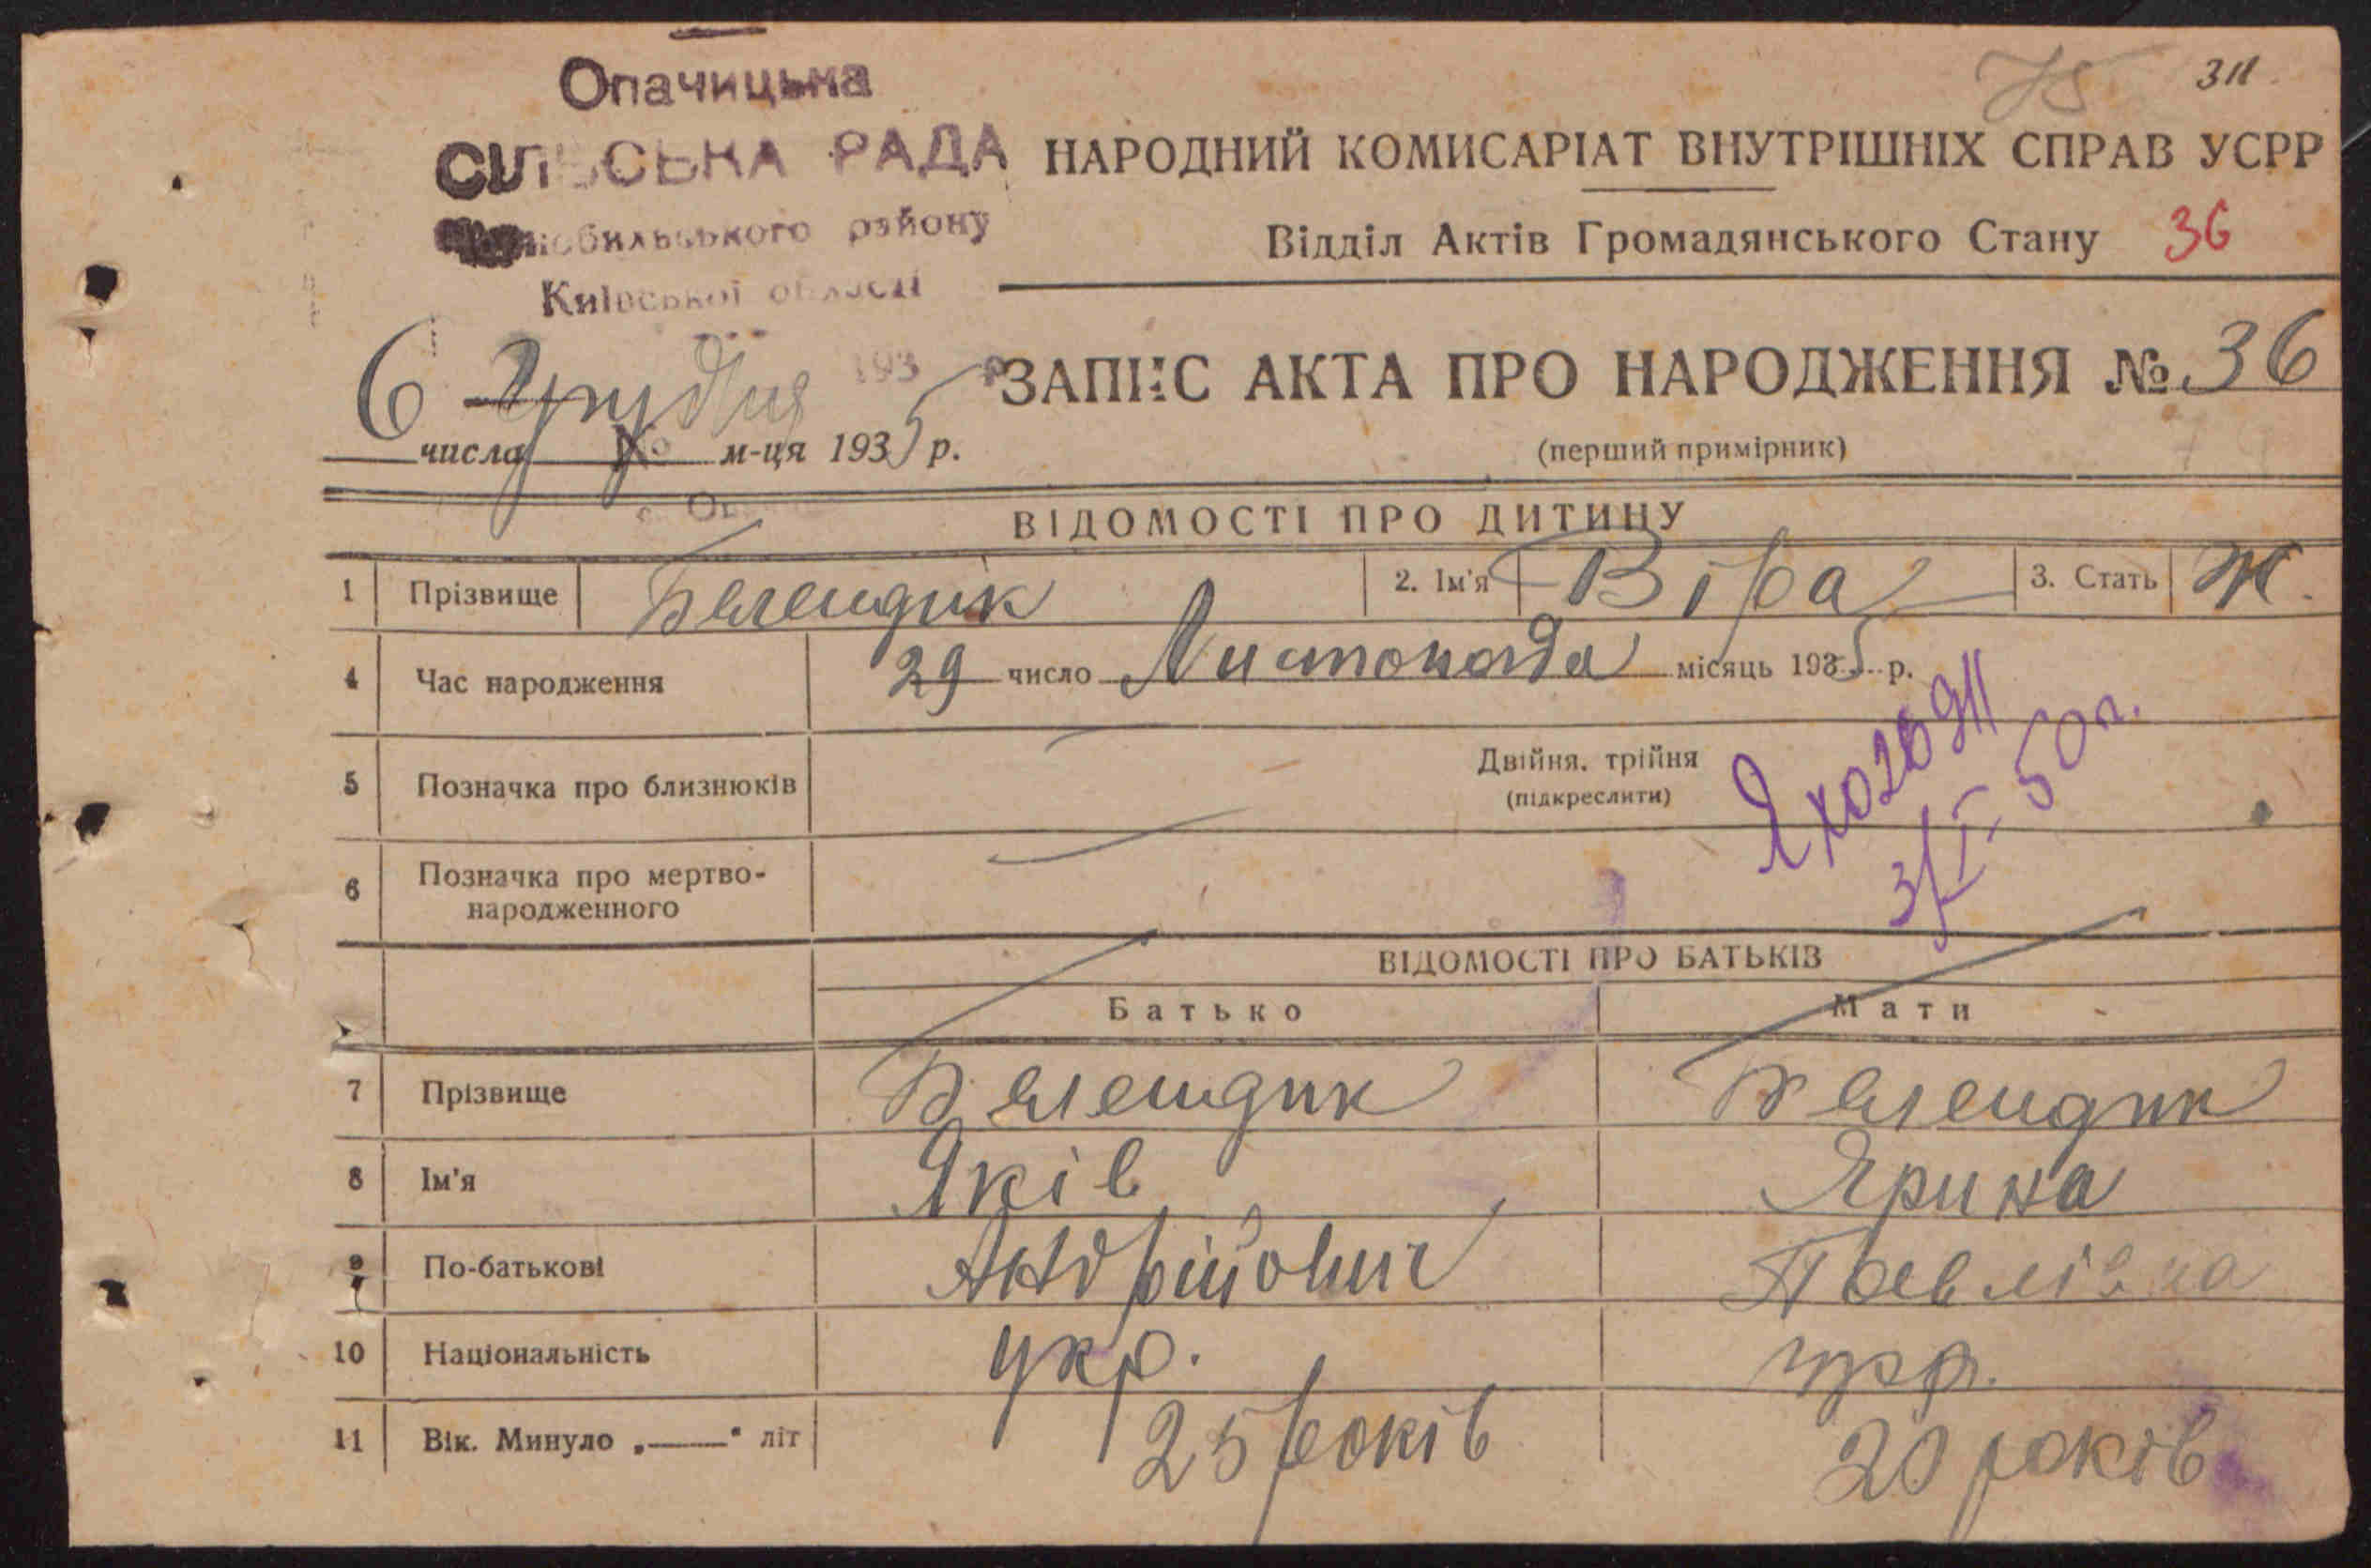 75 311
Опачицька
СІЛЬСЬКА РАДА
Чорнобильського району
Київської області
НАРОДНИЙ КОМИСАРІАТ ВНУТРІШНІХ СПРАВ УСРР
Відділ Актів Громадянського Стану 36
6 числа Грудня м-ця 1935 р.
ЗАПИС АКТА ПРО НАРОДЖЕННЯ № 36
(перший примірник)
ВІДОМОСТІ ПРО ДИТИНУ
1 Прізвище Белендик 2. Ім'я Віра 3. Стать Ж.
4 Час народження 29 число Листопада місяць 1935 р.
5 Позначка про близнюків Двійня, трійня
(підкреслити)
6 Позначка про мертво-
народженного
ВІДОМОСТІ ПРО БАТЬКІВ
Батько Мати
7 Прізвище Белендик Белендик
8 Ім'я Яків Ярина
9 По-батькові Андрійович Павлівна
10 Національність укр. укр.
11 Вік. Минуло „——" літ 25 років 20 років